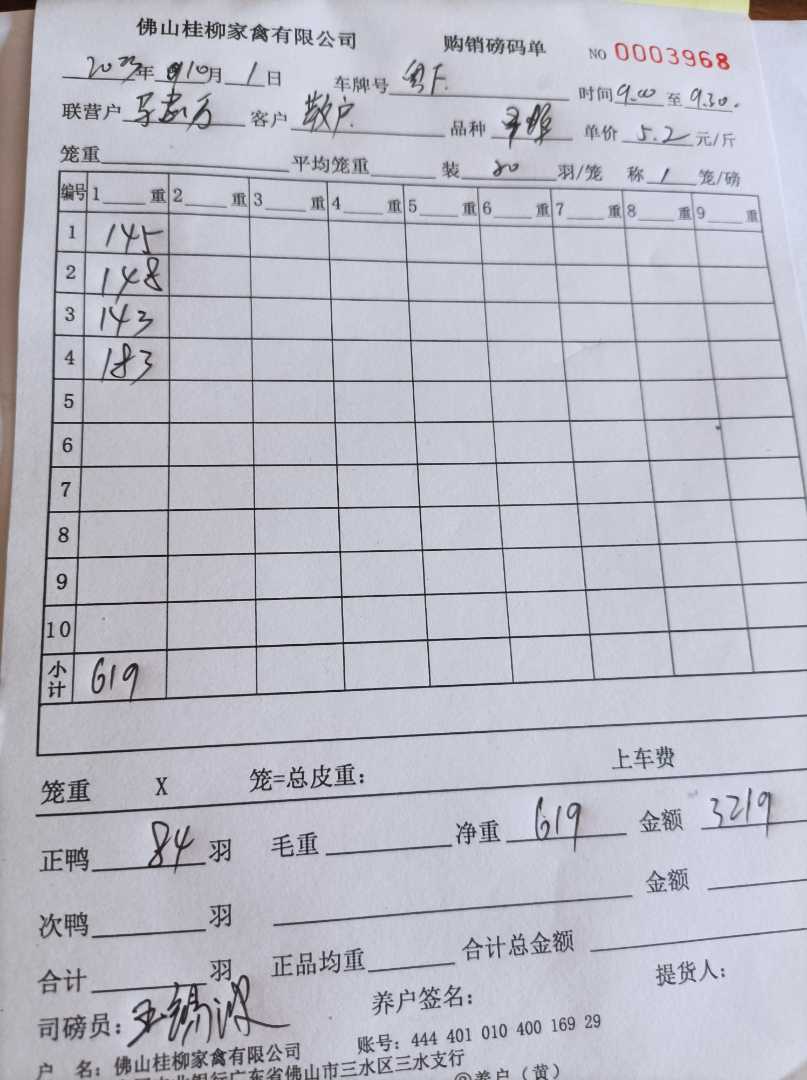 佛山桂柳家禽有限公司 购销磅码单 NO 0003968
2023年 10月 1日 车牌号 粤F. 时间 9.00 至 9.30.
联营户 客户 散户 品种 单价 5.2 元/斤
笼重 平均笼重 装 20 羽/笼 称 1 笼/磅
编号 1 重 2 重 3 重 4 重 5 重 6 重 7 重 8 重 9 重
1 145
2 148
3 143
4 183
5
6
7
8
9
10
小计 619
笼重 X 笼=总皮重： 上车费
正鸭 84 羽 毛重 净重 619 金额 3219
次鸭 羽 金额
合计 羽 正品均重 合计总金额
司磅员： 王锡波 养户签名： 提货人：
户 名：佛山桂柳家禽有限公司 账号：444 401 010 400 169 29
广东省佛山市三水区三水支行
养户（黄）